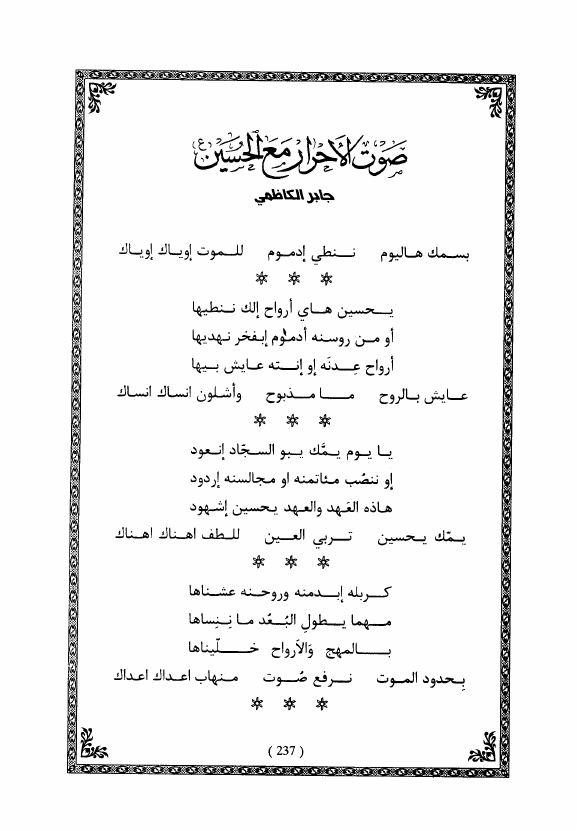 صوت الأحرار مع الحسين (ع)
جابر الكاظمي
بسمك هاليوم ننطي إدموم للموت إوياك إوياك
يحسين هاي أرواح إلك ننطيها
أو من روسنه أدموم إبفخر نهديها
أرواح عِدنَه إو إنته عايش بيها
عايش بالروح ما مذبوح وأشلون انساك انساك
يا يوم يمَّك يبو السجّاد إنعود
إو ننصُب مئاتمنه او مجالسنه إردود
هاذه العَهد والعهد يحسين إشهود
يمّك يحسين تربي العين للطف اهناك اهناك
كربله إبدمنه وروحنه عشناها
مهما يطولِ البُعُد ما نِنِساها
بالمهج وَالأرواح خلّيناها
بِحدود الموت نرفع صُوت منهاب اعداك اعداك
( 237 )